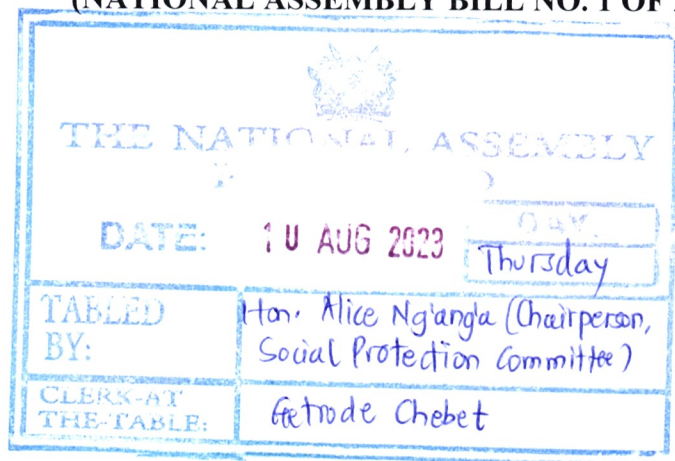 (NATIONAL ASSEMBLY BILL NO. 1 OF
THE NATIONAL ASSEMBLY
DATE: 10 AUG 2023
DAY.
Thursday
TABLED BY:
Hon. Alice Ng'ang'a (Chairperson,
Social Protection Committee)
CLERK-AT THE-TABLE:
Getrode Chebet